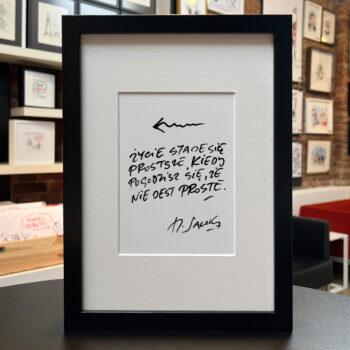 ŻYCIE STAJE SIĘ
PROSTSZE, KIEDY
POGODZISZ SIĘ, ŻE
NIE JEST PROSTE.